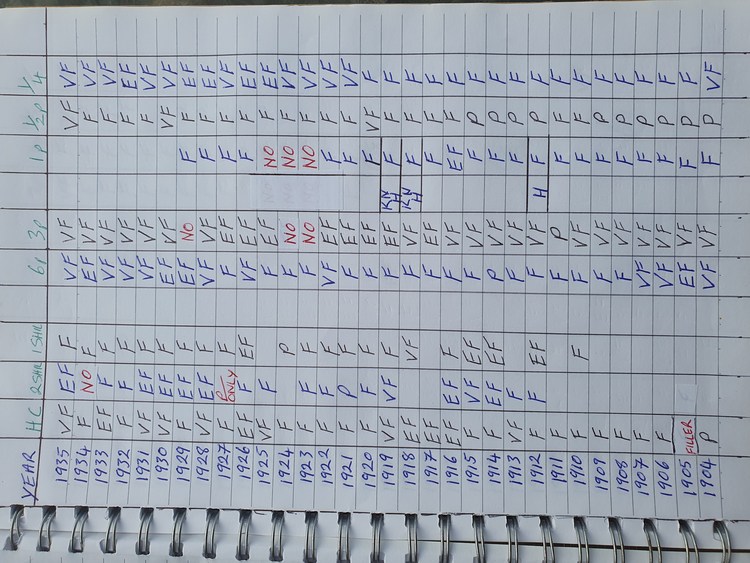 YEAR HC 2SHR 1SHR 6P 3P 1P 1/2P 1/4
1935 VF EF F VF VF VF VF
1934 F NO F EF VF F VF
1933 EF F F VF VF F VF
1932 F F F VF VF F EF
1931 VF EF F VF VF F VF
1930 VF EF F EF VF VF VF
1929 F EF F EF NO F F EF
1928 VF EF F VF VF F F EF
1927 F P ONLY F F EF F F VF
1926 EF F EF VF EF F F EF
1925 VF F F EF NO F EF
1924 F P F NO NO F VF
1923 F F F F NO NO F VF
1922 F F F VF EF F F VF
1921 F P F F EF F F VF
1920 F F F F EF F VF F
1919 VF VF F F EF KN H F F F
1918 EF VF F VF KN H F F F
1917 EF F EF F F F
1916 EF EF F F VF EF F F
1915 F VF EF F VF F P F
1914 F EF EF P VF F P F
1913 VF F F VF F P F
1912 F F EF F VF H F P F
1911 F F P F F F
1910 F F F VF F F F
1909 F F VF F P F
1908 F F VF F P F
1907 F VF VF F P F
1906 F VF VF F P F
1905 FILLER EF VF F P F
1904 P VF VF F P VF